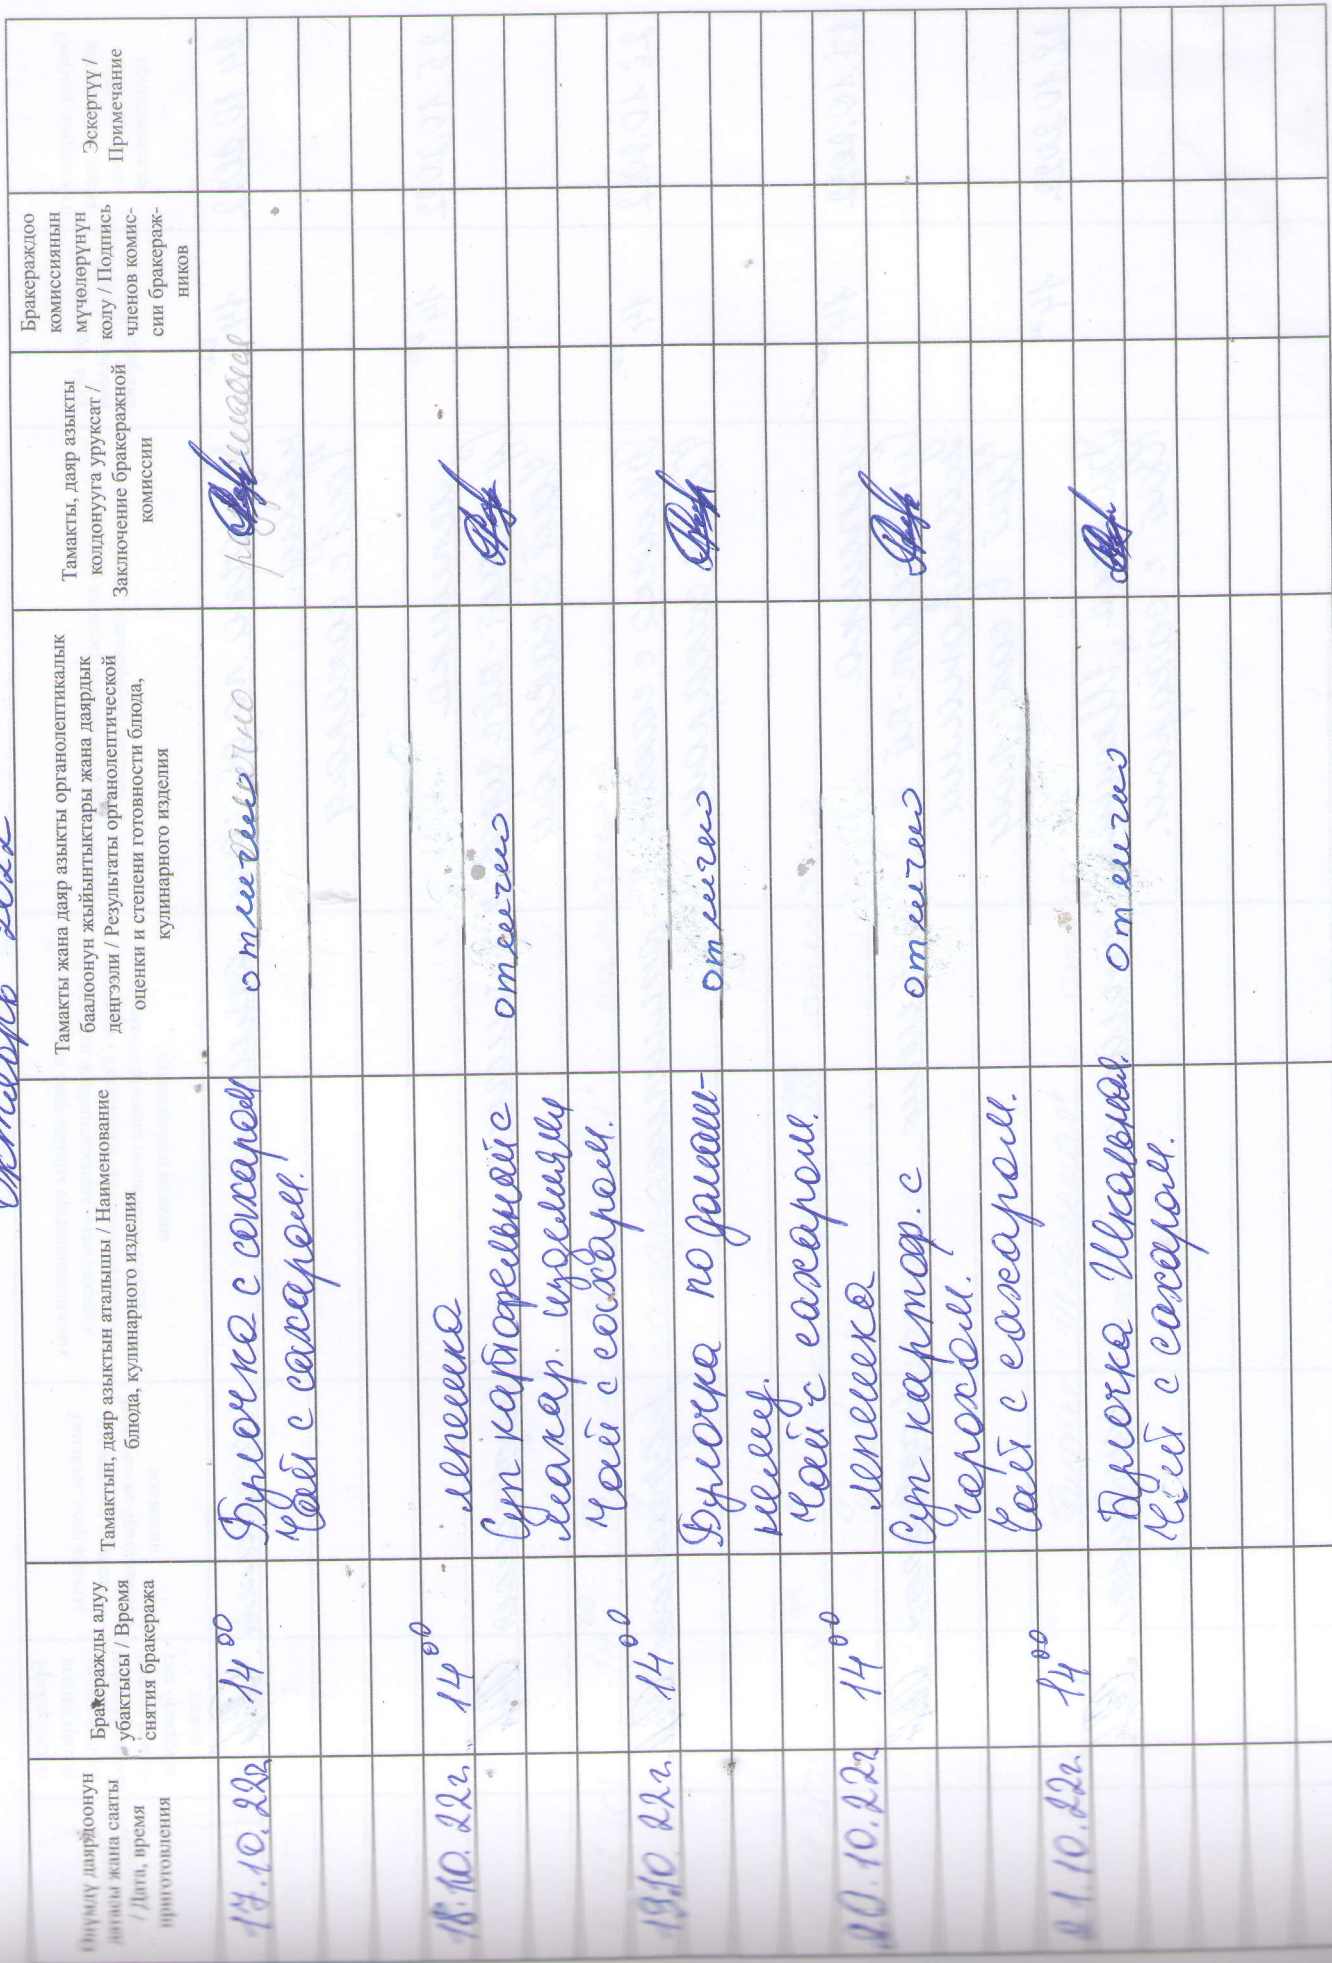 Октябрь 2022
Өнүмдү даярдоонун
датасы жана сааты
/ Дата, время
приготовления
Бракеражды алуу
убактысы / Время
снятия бракеража
Тамактын, даяр азыктын аталышы / Наименование
блюда, кулинарного изделия
Тамакты жана даяр азыкты органолептикалык
баалоонун жыйынтыктары жана даярдык
деңгээли / Результаты органолептической
оценки и степени готовности блюда,
кулинарного изделия
Тамакты, даяр азыкты
колдонууга уруксат /
Заключение бракеражной
комиссии
Бракераждоо
комиссиянын
мүчөлөрүнүн
колу / Подпись
членов комис-
сии бракераж-
ников
Эскертүү /
Примечание
17.10.22г 14 00 Булочка с сахаром отлично
Чай с сахаром.
18.10.22г. 14 00 лепешка
Суп картофельный с отлично
макар. изделиями
Чай с сахаром.
19.10.22г. 14 00 Булочка по домаш- отлично
нему.
Чай с сахаром.
20.10.22г 14 00 лепешка
Суп картоф. с отлично
горохом.
Чай с сахаром.
21.10.22г. 14 00 Булочка Школьная. отлично
Чай с сахаром.